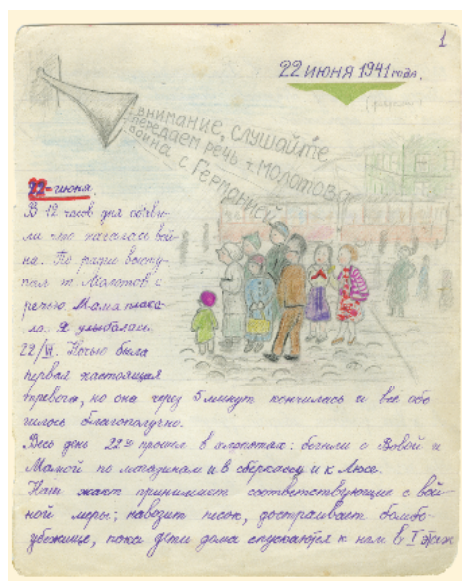 1
22 июня 1941 года.
внимание, слушайте
передаем речь т. Молотова
война с Германией
22-июня.
В 12 часов дня объяви-
ли что началась вой-
на. По радио высту-
пал т. Молотов с
речью. Мама плака-
ла. Я улыбалась.
22/VI. Ночью была
первая настоящая
тревога, но она через 5 минут кончилась и всё обо
шлось благополучно.
Весь день 22го прошел в хлопотах: бегали с Вовой и
Мамой по магазинам и в сберкассу и к Люсе.
Наш жакт принимает соответствующие с вой-
ной меры; навозит песок, достраивает бомбо-
убежище, пока дети дома спускаются к нам в I этаж